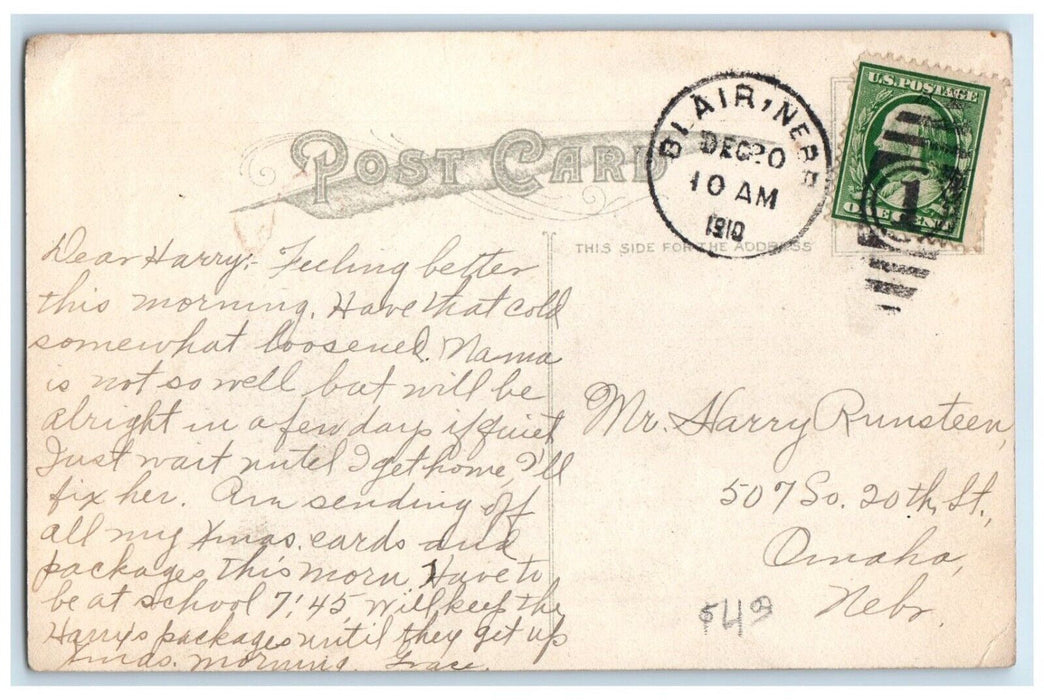 POST CARD
BLAIR, NEBR
DEC 20
10 AM
1910
U.S. POSTAGE
ONE CENT
1
THIS SIDE FOR THE ADDRESS
Dear Harry:- Feeling better
this morning. Have that cold
somewhat loosened. Mama
is not so well but will be
alright in a few days if quiet
Just wait until I get home, I'll
fix her. Am sending off
all my Xmas. cards and
packages this morn. Have to
be at school 7:45 will keep the
Harry's packages until they get up
Xmas. morning. Grace.
Mr. Harry Runsteen,
507 So. 20th, St.,
Omaha,
Nebr.